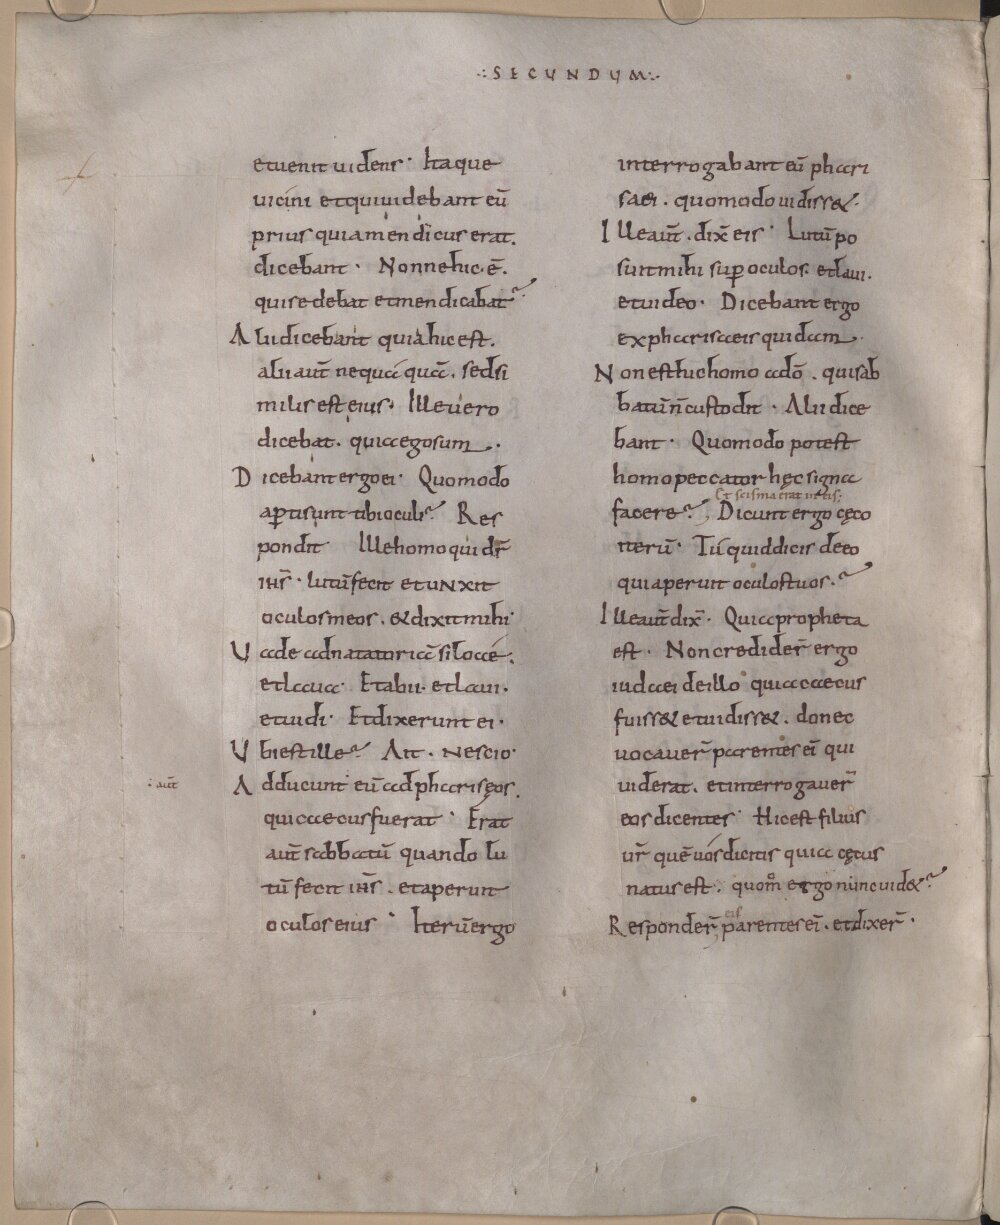 .:SECUNDUM:.
et uenit uidens · Itaque
uicini et qui uidebant eũ
prius quia mendicus erat.
dicebant · Nonne hic · ẽ.
qui sedebat et mendicabat?
Alii dicebant quia hic est.
alii aut̃ nequaquã. sed si
milis est eius · Ille uero
dicebat. quia ego sum ·
Dicebant ergo ei · Quomodo
aꝑti sunt tibi oculi? Res
pondit Ille homo qui dr̃
ihs̃ · lutũ fecit et uNxit
oculos meos. & dixit mihi ·
Uade ad natatoriã siloae ·
et laua · Et abii · et laui ·
et uidi · Et dixerunt ei ·
Ubi est ille? Ait · Nescio ·
: aut̃
Adducunt eũ ad pharisęos.
qui cecus fuerat · Erat
aut̃ sabbatũ quando lu
tũ fecit ihs̃. et aperuit
oculos eius · Iterũ ergo
interrogabant eũ phari
saei. quomodo uidiss& ·
Ille aut̃. dix̃ eis · Lutũ po
suit mihi suꝑ oculos. et laui.
et uideo · Dicebant ergo
ex pharisaeis quidam ·
Non est hic homo a dõ. qui sab
batũ ñ custodit · Alii dice
bant · Quomodo potest
homo peccator hęc signa
Et scisma erat in eis:
facere? Dicunt ergo cęco
iterũ · Tu quid dicis de eo
qui aperuit oculos tuos?
Ille aut̃ dix̃ · Quia propheta
est · Non credider̃ ergo
iudaei de illo quia cecus
fuiss& et uidiss&. donec
uocauer̃ parentes ei qui
uiderat. et interrogauer̃
eos dicentes · Hic est filius
ur̃ quẽ uos dicitis quia cęcus
natus est. quom̊ ergo nunc uid&?
eis
Responder̃ parentes ei · et dixer̃ ·